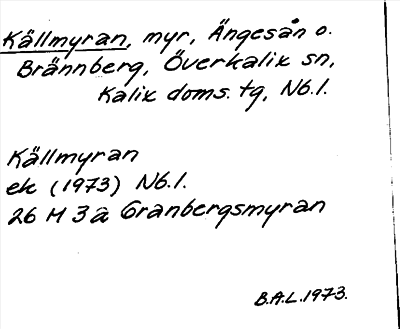 Källmyran, myr, Ängesån o.
Brännberg, Överkalix sn,
Kalix doms. tg, Nb.l.
Källmyran
ek (1973) Nb.l.
26 M 3 a Granbergsmyran
B.A.L. 1973.